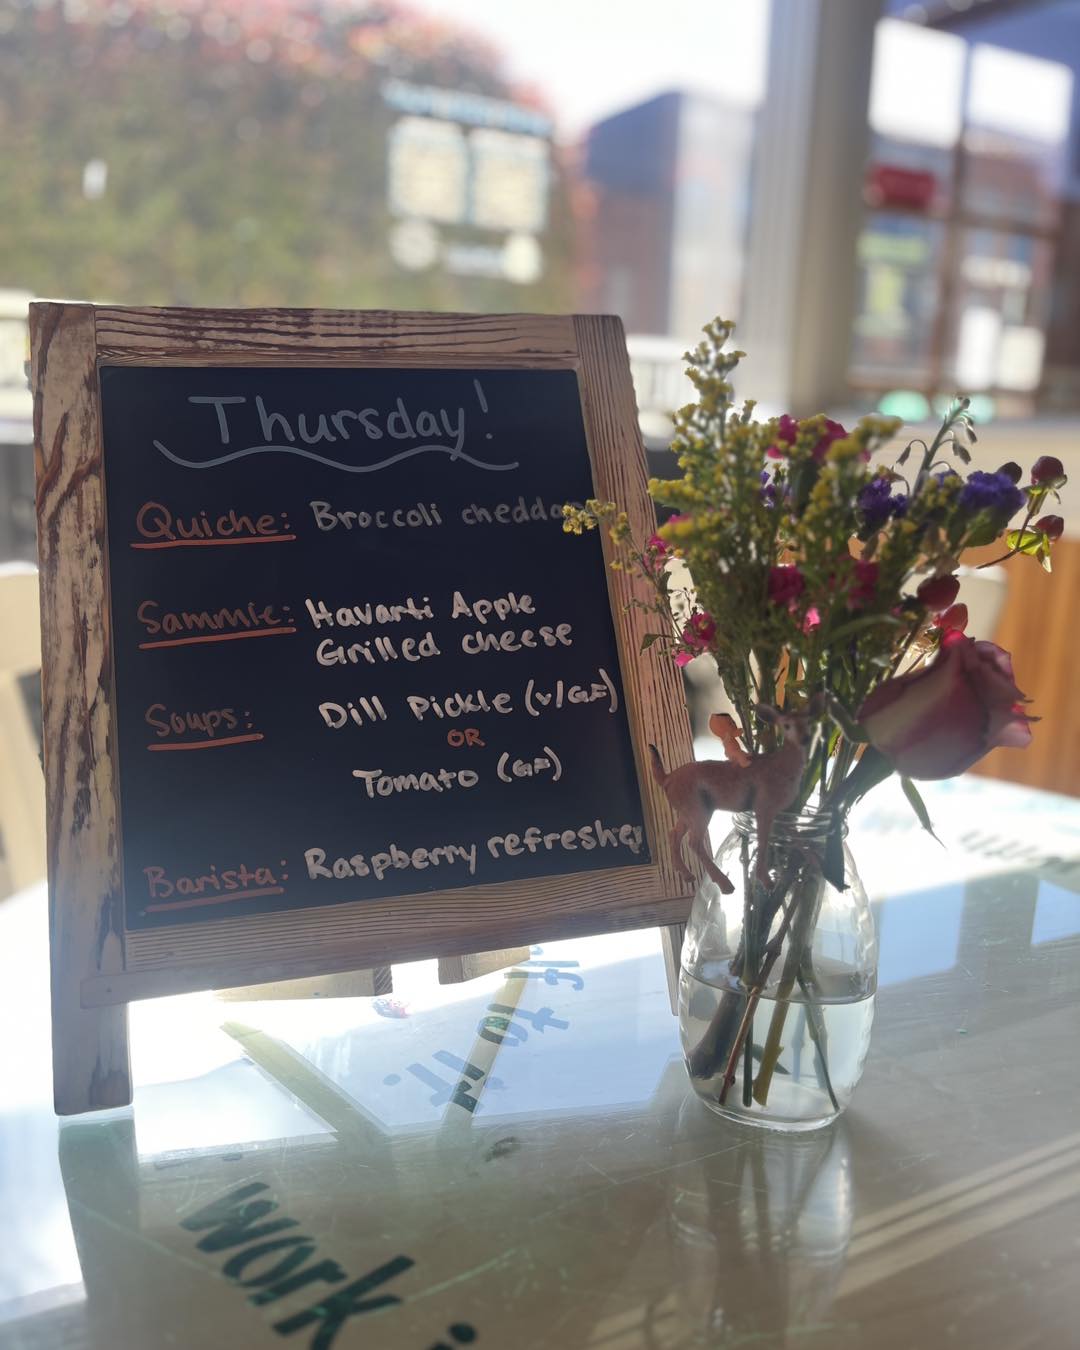 Thursday!
Quiche: Broccoli cheddar
Sammie: Havarti Apple
Grilled cheese
Soups: Dill Pickle (v/GF)
OR
Tomato (GF)
Barista: Raspberry refresher
work